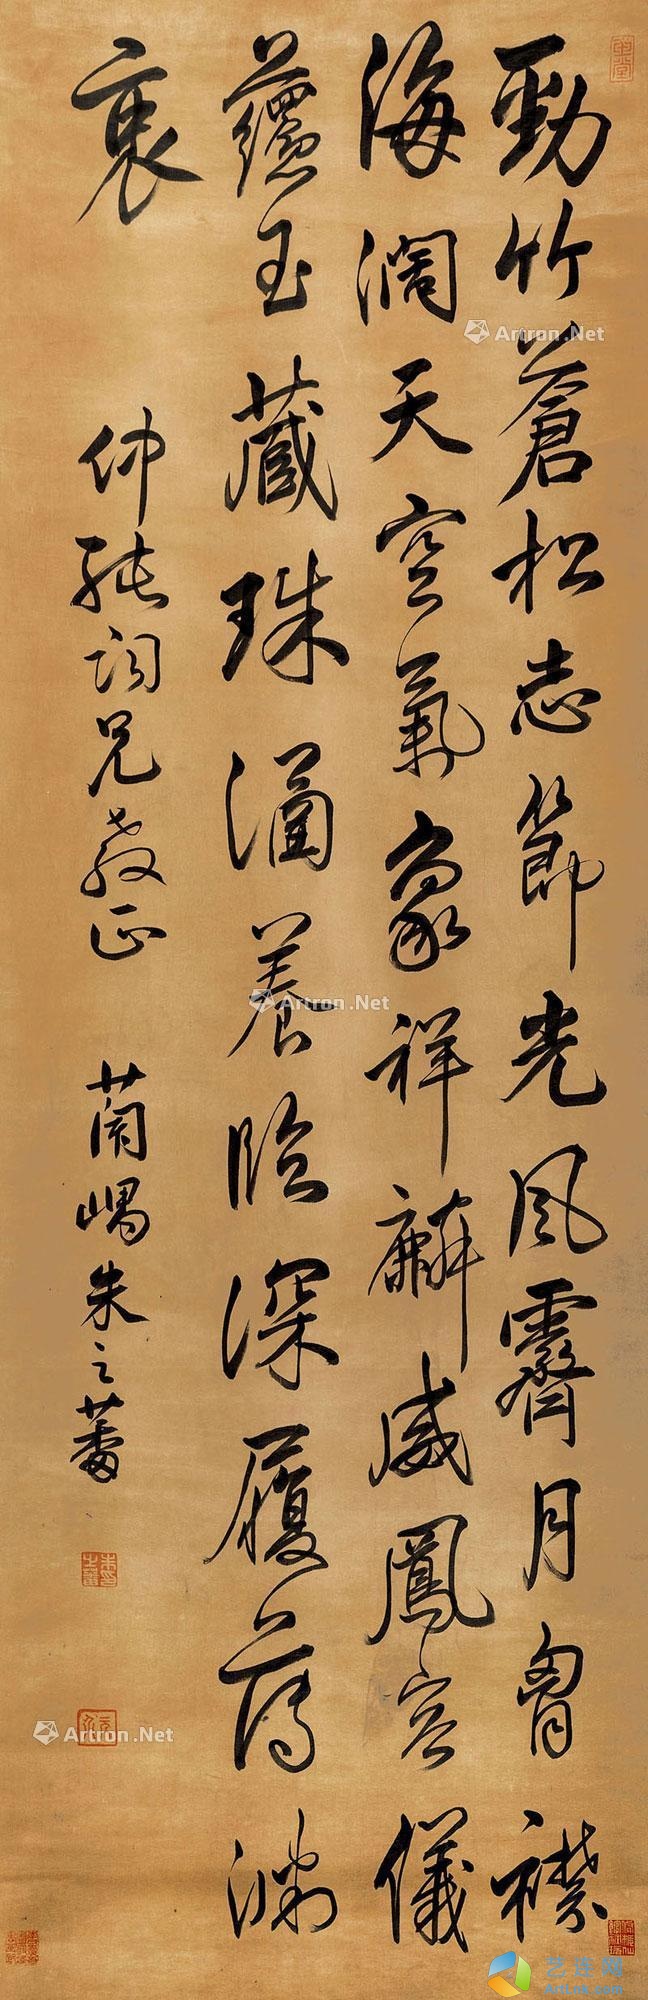 勁竹蒼松志節光風霽月胷襟
海濶天空氣象祥麟威鳳容儀
蘊玉藏珠涵養臨深履薄淵
衷
仲張詞兄教正
蘭嵎朱之蕃
Artron.Net
Artron.Net
Artron.Net
艺连网
Artlnk.com